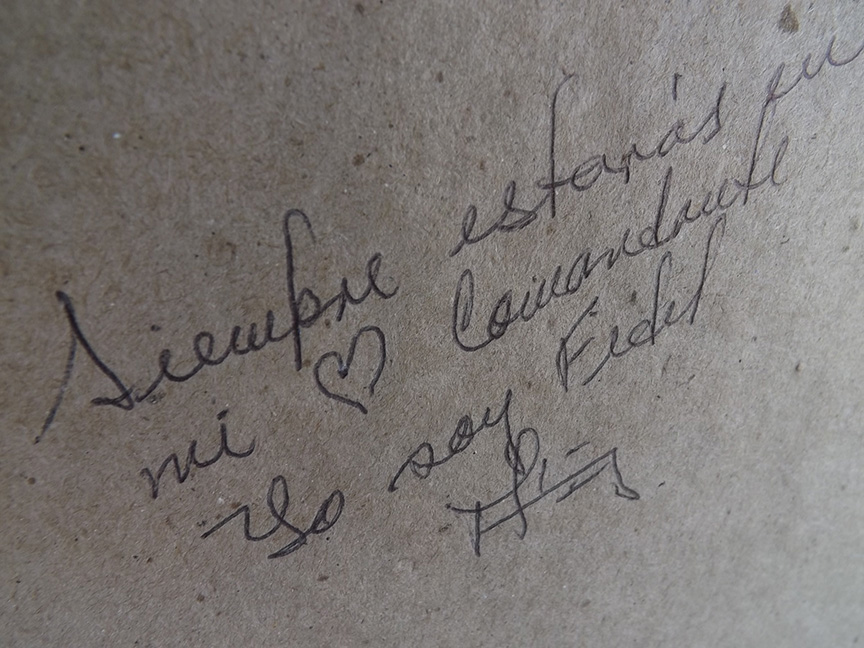 Siempre estarás en
mi ♡ Comandante
Yo soy Fidel